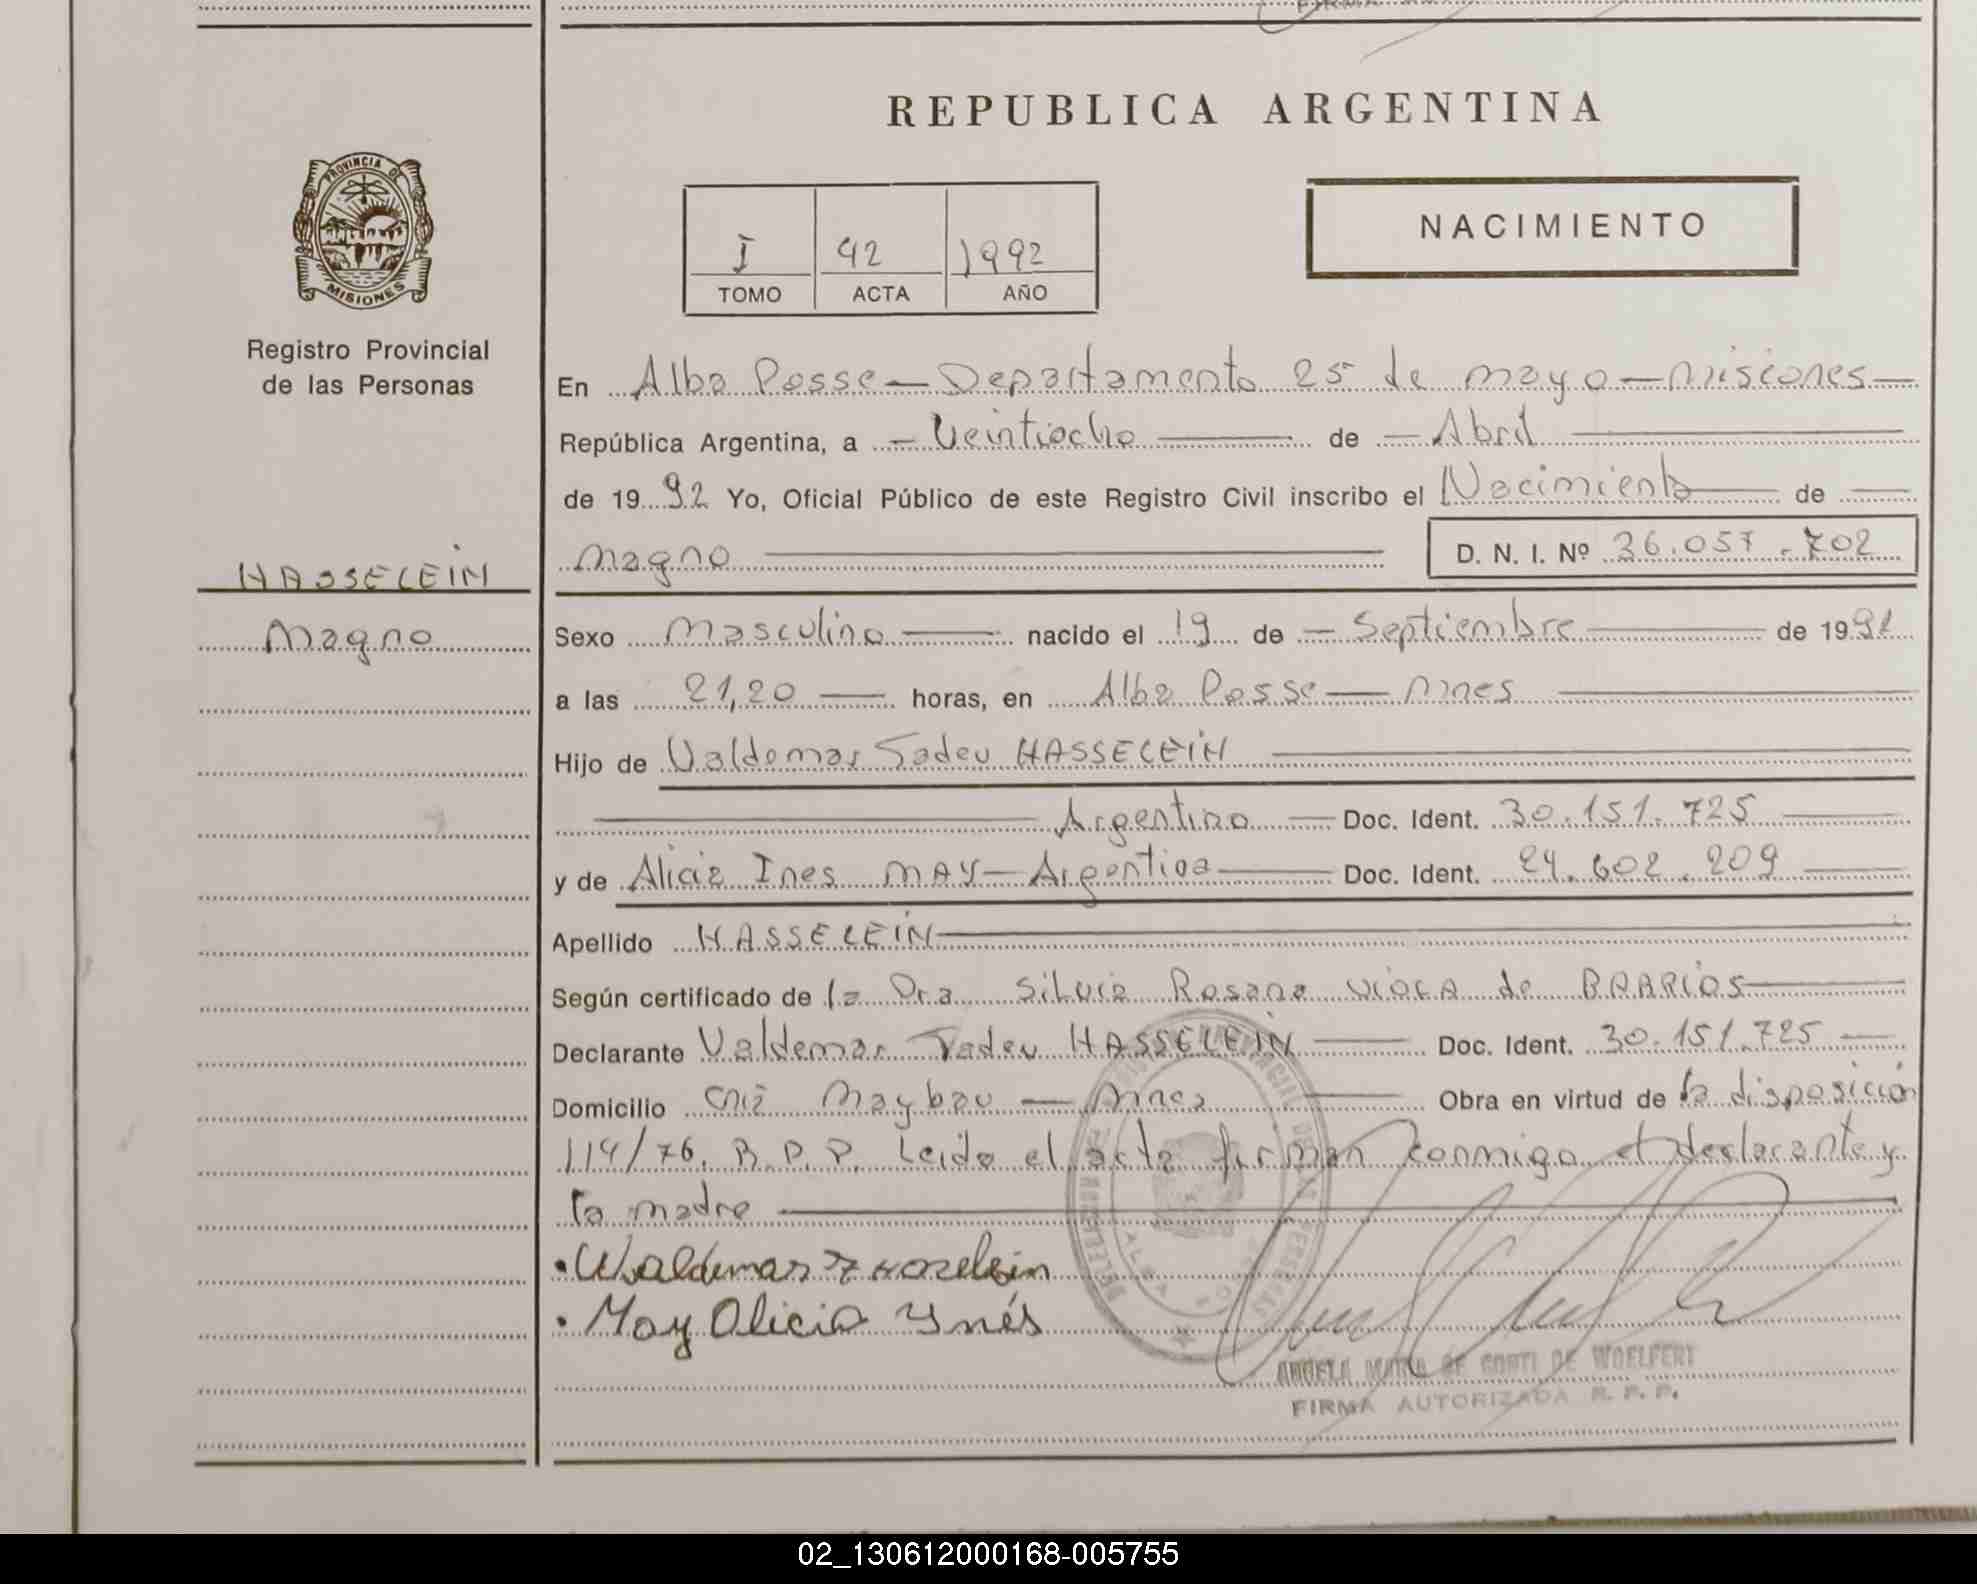 REPUBLICA ARGENTINA
PROVINCIA DE
MISIONES
Registro Provincial
de las Personas
I 42 1992
TOMO ACTA AÑO
NACIMIENTO
En Alba Posse — Departamento 25 de mayo — Misiones —
República Argentina, a — Veintiocho — de — Abril —
de 19 92 Yo, Oficial Público de este Registro Civil inscribo el Nacimiento — de —
Magno — D. N. I. Nº 36.057.702
HASSELEIN
Magno
Sexo Masculino — nacido el 19 de — Septiembre — de 19 91
a las 21,20 — horas, en Alba Posse — Mnes —
Hijo de Valdemar Tadeu HASSELEIN —
— Argentino — Doc. Ident. 30.151.725 —
y de Alicia Ines MAY — Argentina — Doc. Ident. 24.602.209 —
Apellido HASSELEIN —
Según certificado de la Dra Silvia Rosana de BARRIOS —
Declarante Valdemar Tadeu HASSELEIN — Doc. Ident. 30.151.725 —
Domicilio — Obra en virtud de la disposición
114/76. R.P.P. Leida el acta firman conmigo el declarante y
la madre —
• Waldemar T
• May Alicia Ynés
ANGELA MARIA DE CONTI DE WOELFERT
FIRMA AUTORIZADA R. P. P.
02_130612000168-005755